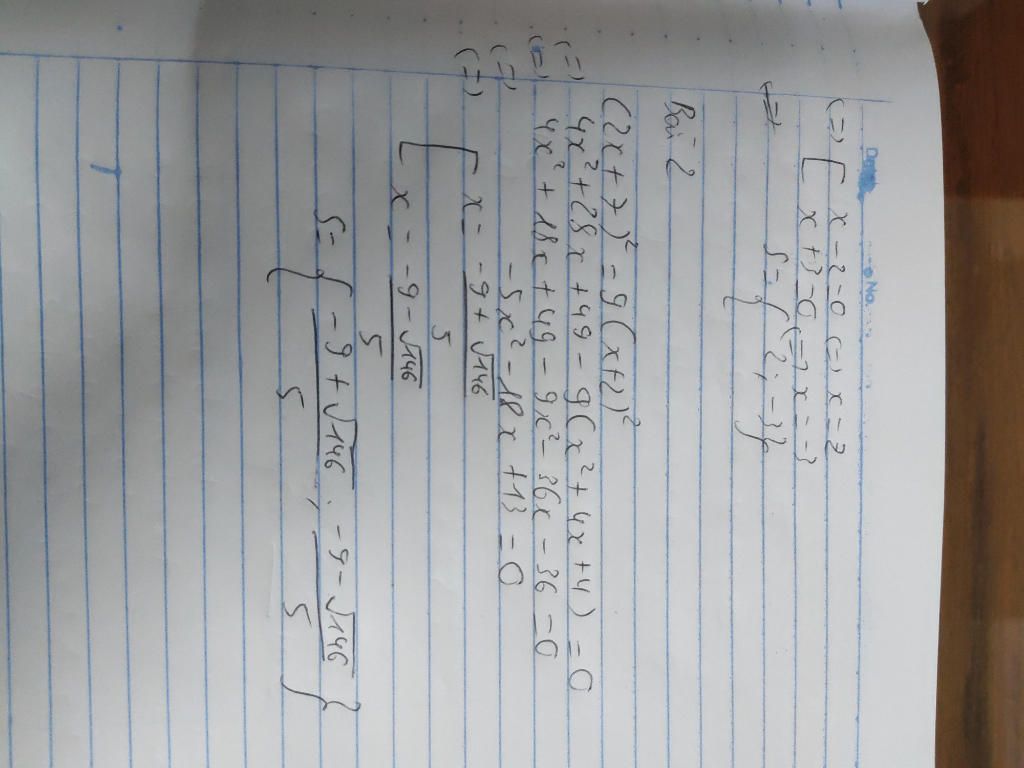 No.
(=) [ x - 2 = 0 (=) x = 2
x + 3 = 0 (=) x = -3
(=) S = { 2; -3 }
Bài 2
(2x + 7)² = 9 (x+2)²
(=) 4x² + 28x + 49 - 9(x² + 4x + 4) = 0
(=) 4x² + 18x + 49 - 9x² - 36x - 36 = 0
(=) -5x² - 18x + 13 = 0
(=) [ x = -9 + √146 / 5
x = -9 - √146 / 5
S = { -9 + √146 / 5 ; -9 - √146 / 5 }